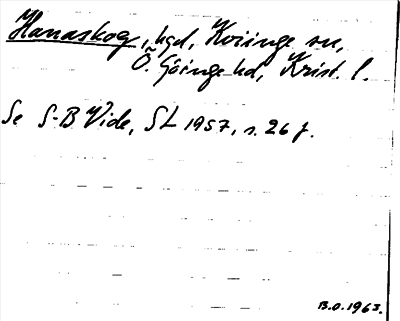 Hanaskog, hgd, Kviinge sn,
Ö. Göinge hd, Krist. l.
Se S-B Vide, SL 1957, s. 26 f.
B.O. 1963.